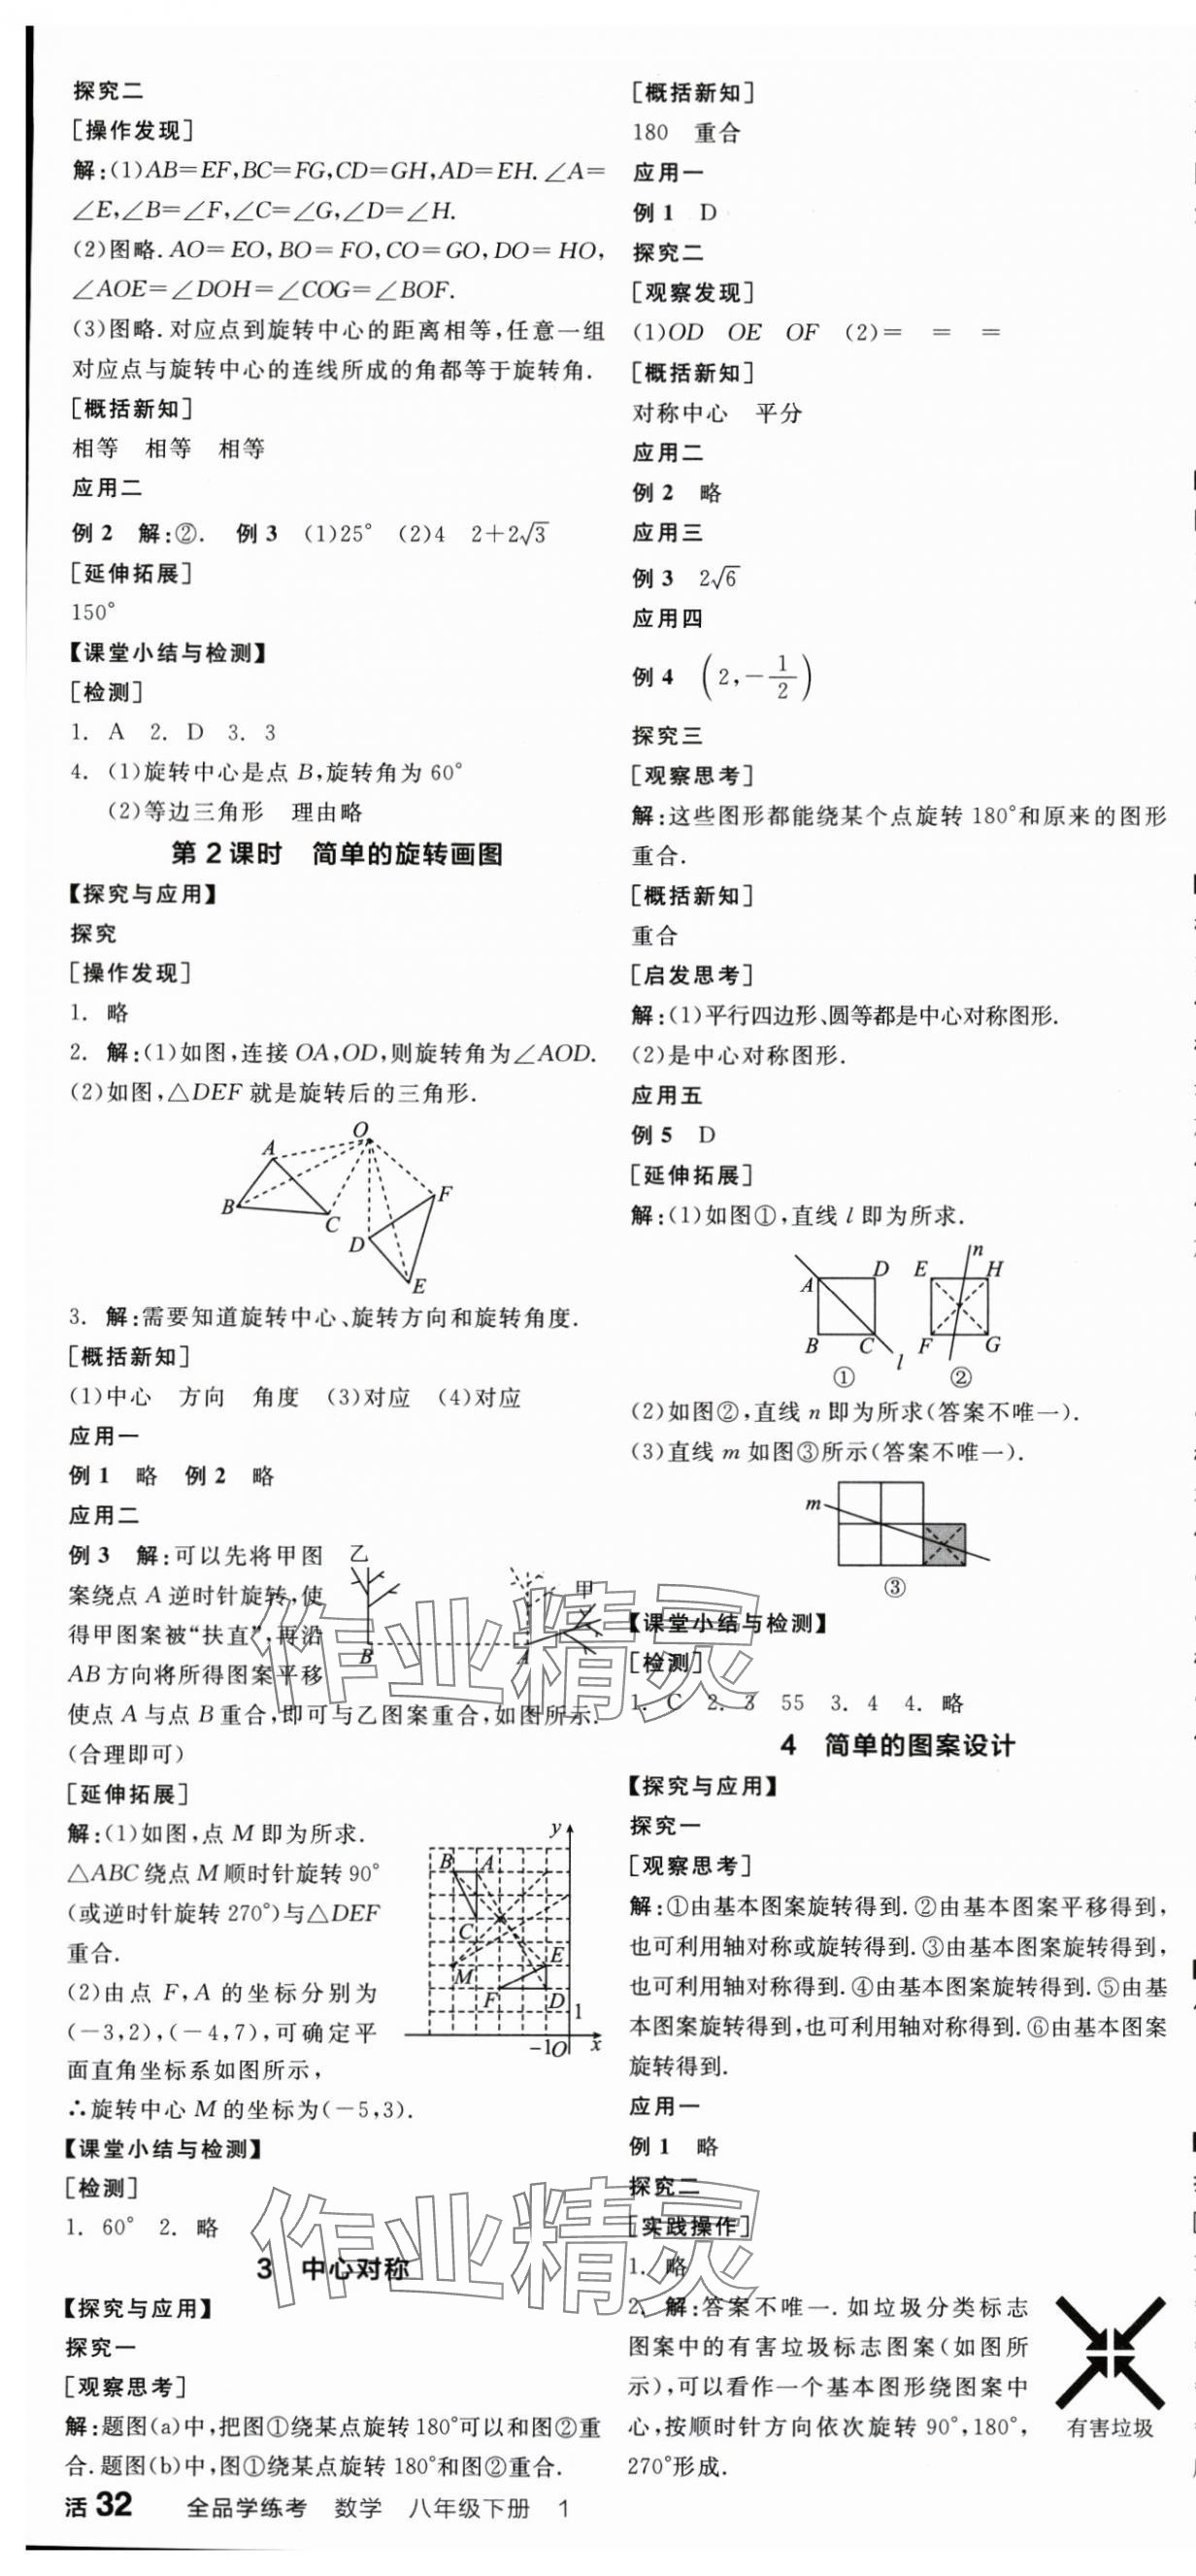 探究二
[操作发现]
解:(1)AB=EF,BC=FG,CD=GH,AD=EH.∠A=
∠E,∠B=∠F,∠C=∠G,∠D=∠H.
(2)图略.AO=EO,BO=FO,CO=GO,DO=HO,
∠AOE=∠DOH=∠COG=∠BOF.
(3)图略.对应点到旋转中心的距离相等,任意一组
对应点与旋转中心的连线所成的角都等于旋转角.
[概括新知]
相等 相等 相等
应用二
例2 解:②. 例3 (1)25° (2)4 2+2√3
[延伸拓展]
150°
【课堂小结与检测】
[检测]
1. A 2. D 3. 3
4. (1)旋转中心是点B,旋转角为60°
(2)等边三角形 理由略
第2课时 简单的旋转画图
【探究与应用】
探究
[操作发现]
1. 略
2. 解:(1)如图,连接OA,OD,则旋转角为∠AOD.
(2)如图,△DEF就是旋转后的三角形.
O
A
B
C
D
F
E
3. 解:需要知道旋转中心、旋转方向和旋转角度.
[概括新知]
(1)中心 方向 角度 (3)对应 (4)对应
应用一
例1 略 例2 略
应用二
例3 解:可以先将甲图
案绕点A逆时针旋转,使
得甲图案被“扶直”,再沿
AB方向将所得图案平移
使点A与点B重合,即可与乙图案重合,如图所示.
(合理即可)
乙
甲
B
A
[延伸拓展]
解:(1)如图,点M即为所求.
△ABC绕点M顺时针旋转90°
(或逆时针旋转270°)与△DEF
重合.
(2)由点F,A的坐标分别为
(-3,2),(-4,7),可确定平
面直角坐标系如图所示,
∴旋转中心M的坐标为(-5,3).
y
B A
C
M
E
F D
1
-1O x
【课堂小结与检测】
[检测]
1. 60° 2. 略
3 中心对称
【探究与应用】
探究一
[观察思考]
解:题图(a)中,把图①绕某点旋转180°可以和图②重
合.题图(b)中,图①绕某点旋转180°和图②重合.
活32 全品学练考 数学 八年级下册 1
[概括新知]
180 重合
应用一
例1 D
探究二
[观察发现]
(1)OD OE OF (2)= = =
[概括新知]
对称中心 平分
应用二
例2 略
应用三
例3 2√6
应用四
例4 (2,-1/2)
探究三
[观察思考]
解:这些图形都能绕某个点旋转180°和原来的图形
重合.
[概括新知]
重合
[启发思考]
解:(1)平行四边形、圆等都是中心对称图形.
(2)是中心对称图形.
应用五
例5 D
[延伸拓展]
解:(1)如图①,直线l即为所求.
n
A D E H
B C F G
l
① ②
(2)如图②,直线n即为所求(答案不唯一).
(3)直线m如图③所示(答案不唯一).
m
③
【课堂小结与检测】
[检测]
1. C 2. 3 55 3. 4 4. 略
4 简单的图案设计
【探究与应用】
探究一
[观察思考]
解:①由基本图案旋转得到.②由基本图案平移得到,
也可利用轴对称或旋转得到.③由基本图案旋转得到,
也可利用轴对称得到.④由基本图案旋转得到.⑤由基
本图案旋转得到,也可利用轴对称得到.⑥由基本图案
旋转得到.
应用一
例1 略
探究二
[实践操作]
1. 略
2. 解:答案不唯一.如垃圾分类标志
图案中的有害垃圾标志图案(如图所
示),可以看作一个基本图形绕图案中
心,按顺时针方向依次旋转90°,180°,
270°形成.
有害垃圾
作业精灵
作业精灵